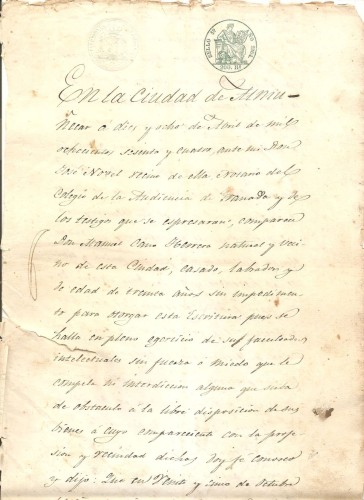 SELLO 9º AÑO 1864
En la ciudad de Almu-
ñecar á dies y ocho de Abril de mil
ochocientos sesenta y cuatro, ante mi Don
José Novel vecino de ella, Notario del
Colegio de la Audiencia de Granada y de
los testigos que se espresaran, comparece
Don Manuel Cano Herrera natural y veci
no de esta Ciudad, casado, labrador y
de edad de treinta años sin impedimen
to para otorgar esta Escritura pues se
halla en pleno egercicio de sus facultades
intelectuales sin fuerza ó miedo que le
compela ni interdiccion alguna que sirva
de obstaculo á la libre disposicion de sus
bienes á cuyo compareciente con la profe
sion y vecindad dichas doy fé conosco
y dijo: Que en veinte y cinco de octubre